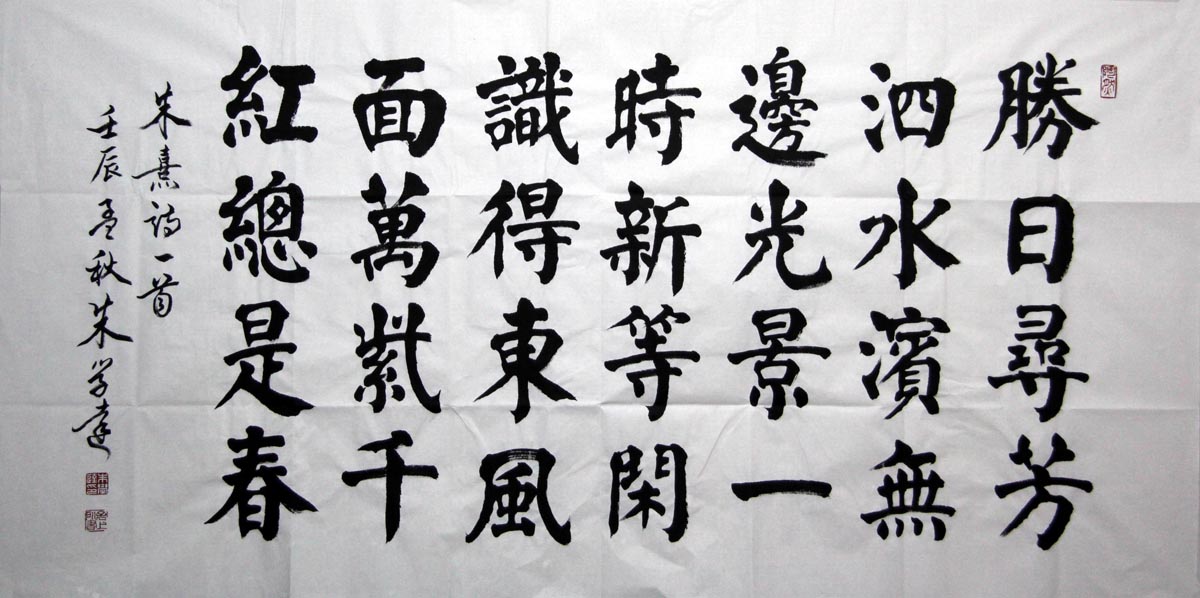 勝日尋芳
泗水濱無
邊光景一
時新等閑
識得東風
面萬紫千
紅總是春
朱熹詩一首
壬辰孟秋朱学達